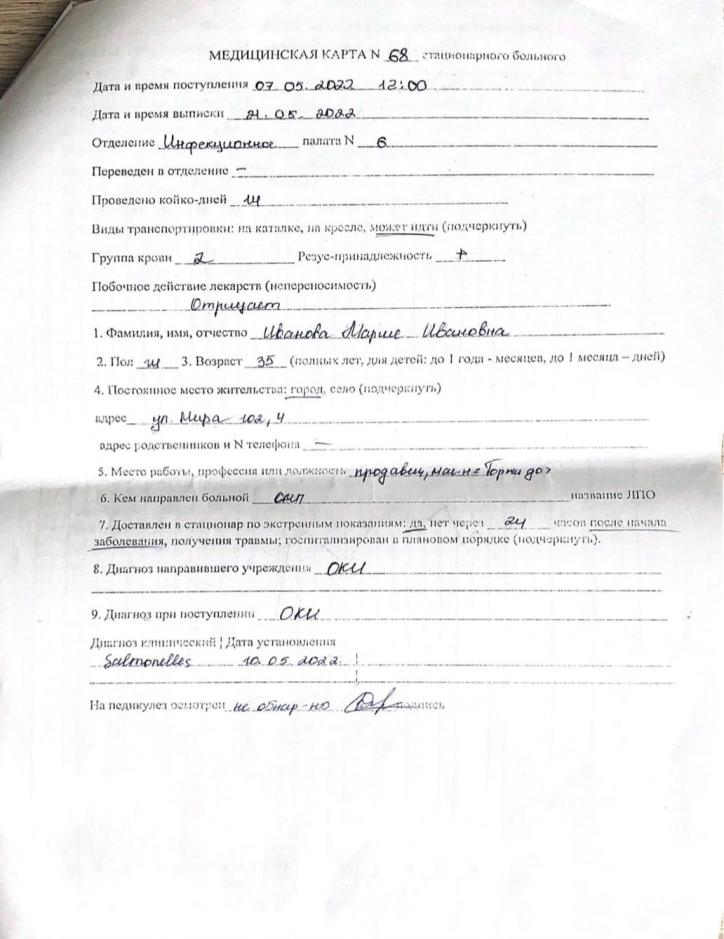 МЕДИЦИНСКАЯ КАРТА N 68 стационарного больного
Дата и время поступления 07. 05. 2022 12:00
Дата и время выписки 21. 05. 2022
Отделение Инфекционное палата N 6
Переведен в отделение –
Проведено койко-дней 14
Виды транспортировки: на каталке, на кресле, может идти (подчеркнуть)
Группа крови 2 Резус-принадлежность +
Побочное действие лекарств (непереносимость)
Отрицает
1. Фамилия, имя, отчество Иванова Мария Ивановна
2. Пол: ж 3. Возраст 35 (полных лет, для детей: до 1 года - месяцев, до 1 месяца – дней)
4. Постоянное место жительства: город, село (подчеркнуть)
адрес ул. Мира 102, 4
адрес родственников и N телефона —
5. Место работы, профессия или должность продавец, маг-н
6. Кем направлен больной СМП название ЛПО
7. Доставлен в стационар по экстренным показаниям: да, нет через 24 часов после начала
заболевания, получения травмы; госпитализирован в плановом порядке (подчеркнуть).
8. Диагноз направившего учреждения ОКИ
9. Диагноз при поступлении ОКИ
Диагноз клинический ¦ Дата установления
Salmonelles 10. 05. 2022.
На педикулез осмотрен не обнар-но подпись